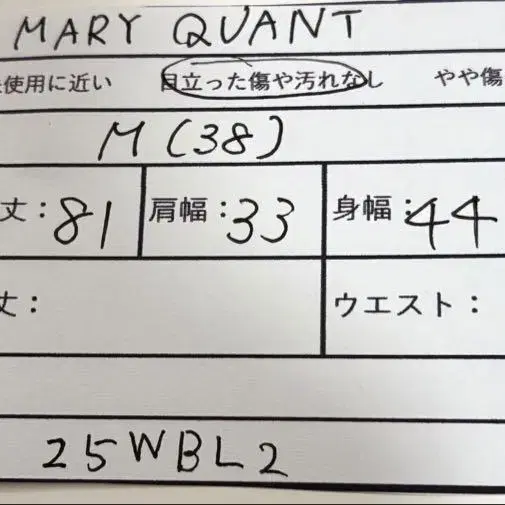 MARY QUANT
使用に近い 目立った傷や汚れなし やや傷
M (38)
丈：81 肩幅：33 身幅：44
丈： ウエスト：
25WBL2